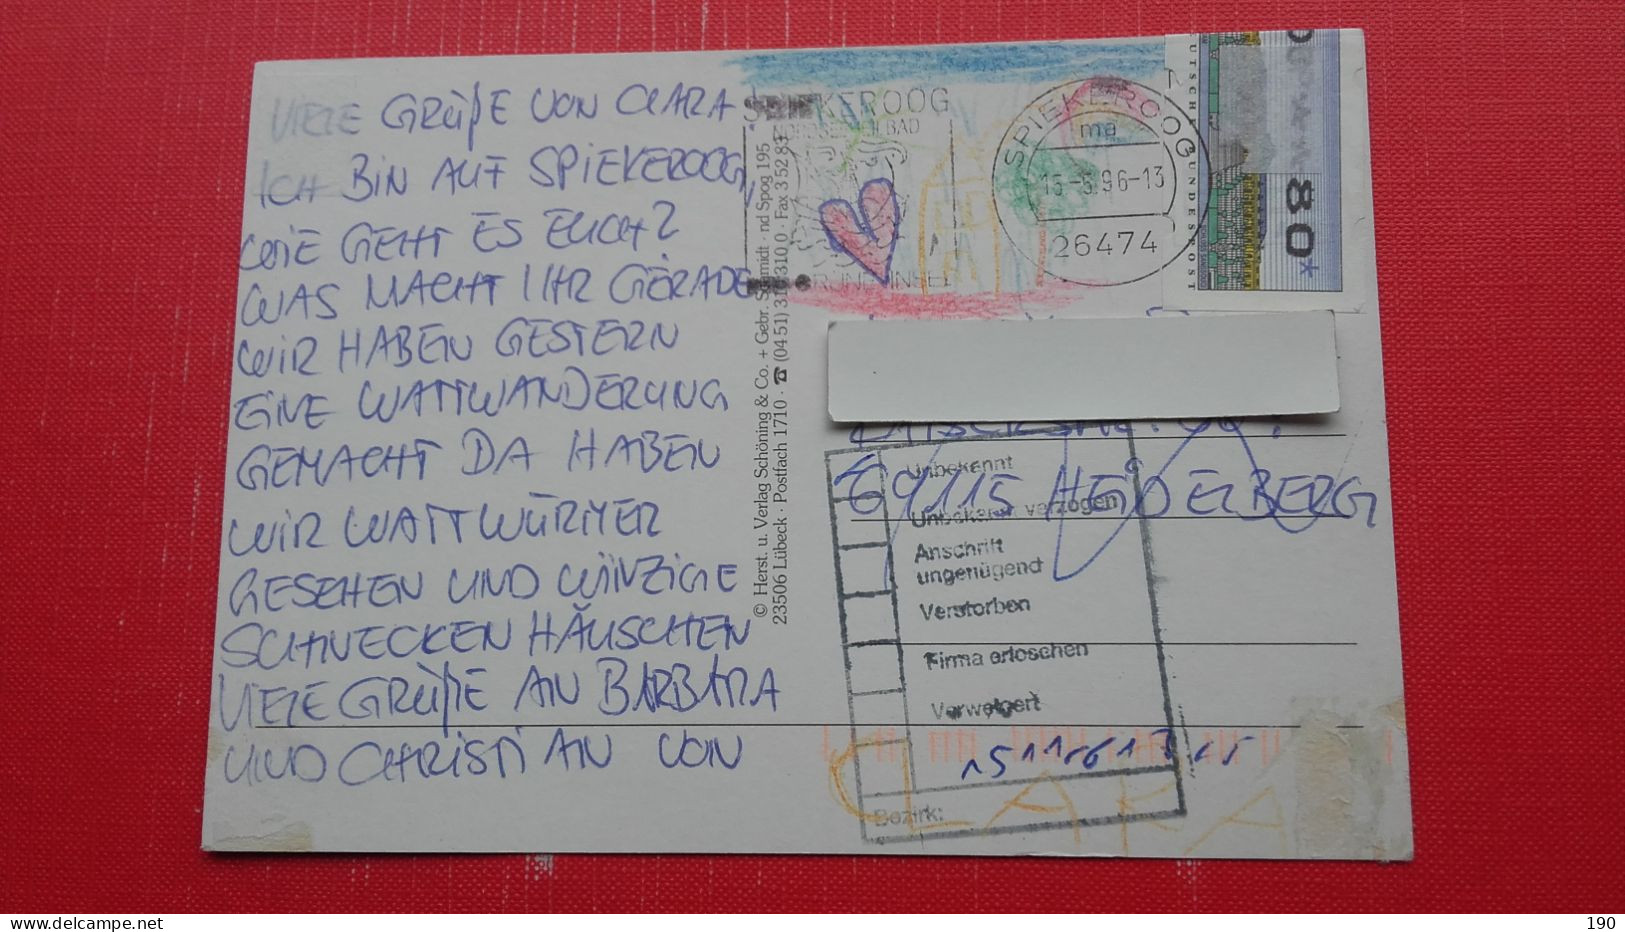 VIELE GRÜßE VON CLARA
ICH BIN AUF SPIEKEROOG,
WIE GEHT ES EUCH?
WAS MACHT IHR GERADE
WIR HABEN GESTERN
EINE WATTWANDERUNG
GEMACHT DA HABEN
WIR WATTWÜRMER
GESEHEN UND WINZIGE
SCHNECKEN HÄUSCHEN
VIELE GRÜßE AN BARBARA
UND CHRISTIAN VON
CLARA
© Herst. u. Verlag Schöning & Co. + Gebr. Schmidt · nd Spog 195
23506 Lübeck · Postfach 1710 · ☎ (04 51) 3 10 · Fax 3 52 83
SPIEKEROOG
NORDSEEHEILBAD
GRÜNE INSEL
SPIEKEROOG
ma
15-5.96-13
26474
DEUTSCHE BUNDESPOST
80*
69115 HEIDELBERG
Unbekannt
Unbekannt verzogen
Anschrift
ungenügend
Verstorben
Firma erloschen
Verweigert
Bezirk:
190
www.delcampe.net